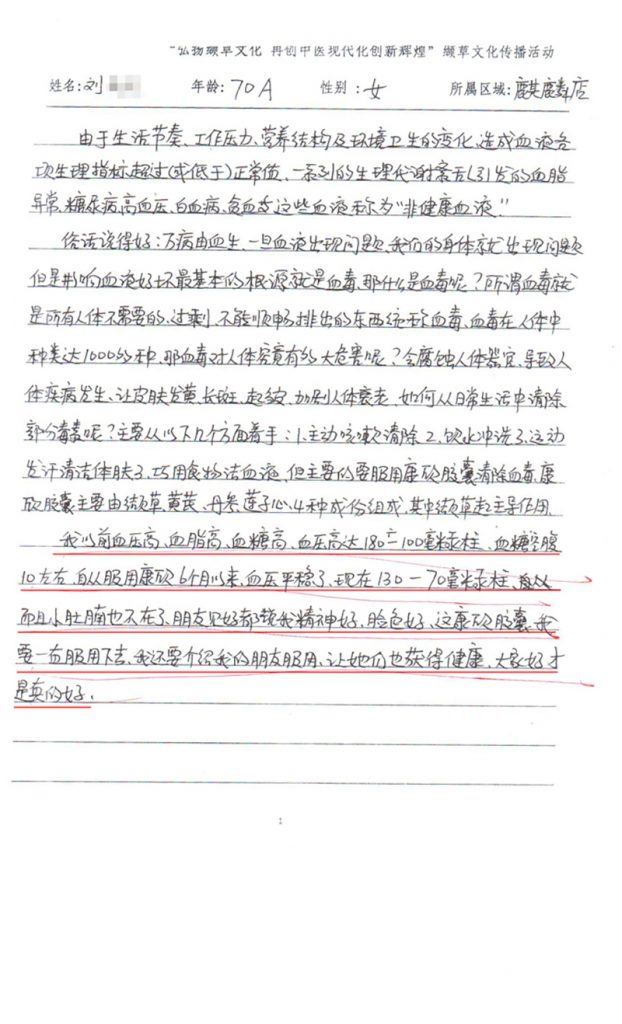 “弘扬缬草文化 再创中医现代化创新辉煌”缬草文化传播活动
姓名:刘 年龄:70 性别:女 所属区域:麒麟店
由于生活节奏、工作压力、营养结构及环境卫生的变化,造成血液各
项生理指标超过(或低于)正常值、一系列的生理代谢紊乱引发的血脂
异常、糖尿病、高血压、白血病、贫血等这些血液称为“非健康血液”
俗话说得好:万病由血生、一旦血液出现问题、我们的身体就出现问题
但是影响血液好坏最基本的根源就是血毒、那什么是血毒呢?所谓血毒就
是所有人体不需要的、过剩、不能顺畅排出的东西统称血毒、血毒在人体中
种类达1000多种、那血毒对人体究竟有多大危害呢?会腐蚀人体器官、导致人
体疾病发生、让皮肤发黄、长斑、起皱、加剧人体衰老、如何从日常生活中清除
部分毒素呢?主要从以下几个方面着手:1、主动咳嗽清除2、饮水冲洗3、运动
发汗清洁体肤3、巧用食物洁血液、但主要的要服用康欣胶囊清除血毒、康
欣胶囊主要由缬草、黄芪、丹参、莲子心、4种成份组成、其中缬草起主导作用
我以前血压高、血脂高、血糖高、血压高达180—100毫米汞柱、血糖空腹
10左右、自从服用康欣6个月以来、血压平稳了、现在130—70毫米汞柱、
而且小肚腩也不在了、朋友见好都说我精神好、脸色好、这康欣胶囊、我
要一直服用下去、我还要介绍我的朋友服用、让她们也获得健康、大家好才
是真的好。
1